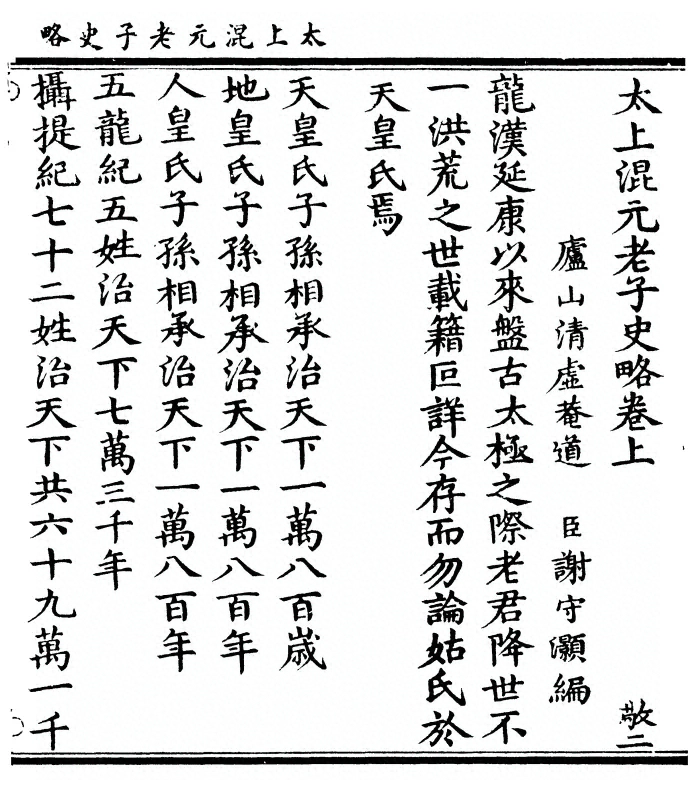 太上混元老子史略
太上混元老子史略卷上 敬二
廬山清虛菴道 臣謝守灝編
龍漢延康以來盤古太極之際老君降世不
一洪荒之世載籍叵詳今存而勿論姑氏於
天皇氏焉
天皇氏子孫相承治天下一萬八百歲
地皇氏子孫相承治天下一萬八百年
人皇氏子孫相承治天下一萬八百年
五龍紀五姓治天下七萬三千年
攝提紀七十二姓治天下共六十九萬一千